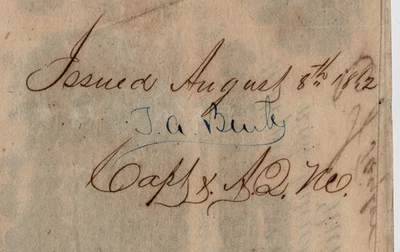 Issued August 8th 1862
Capt & A.Q.M.